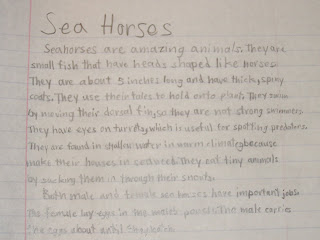 Sea Horses
Seahorses are amazing animals. They are
small fish that have heads shaped like horses.
They are about 5 inches long and have thick, spiny
coats. They use their tales to hold onto plants. They swim
by moving their dorsal fin, so they are not strong swimmers.
They have eyes on turrets, which is useful for spotting predators.
They are found in shallow water in warm climates because
make their houses in seaweed. They eat tiny animals
by sucking them in through their snouts.
Both male and female sea horses have important jobs.
The female lay eggs in the pouch. The male carries
the eggs about until they